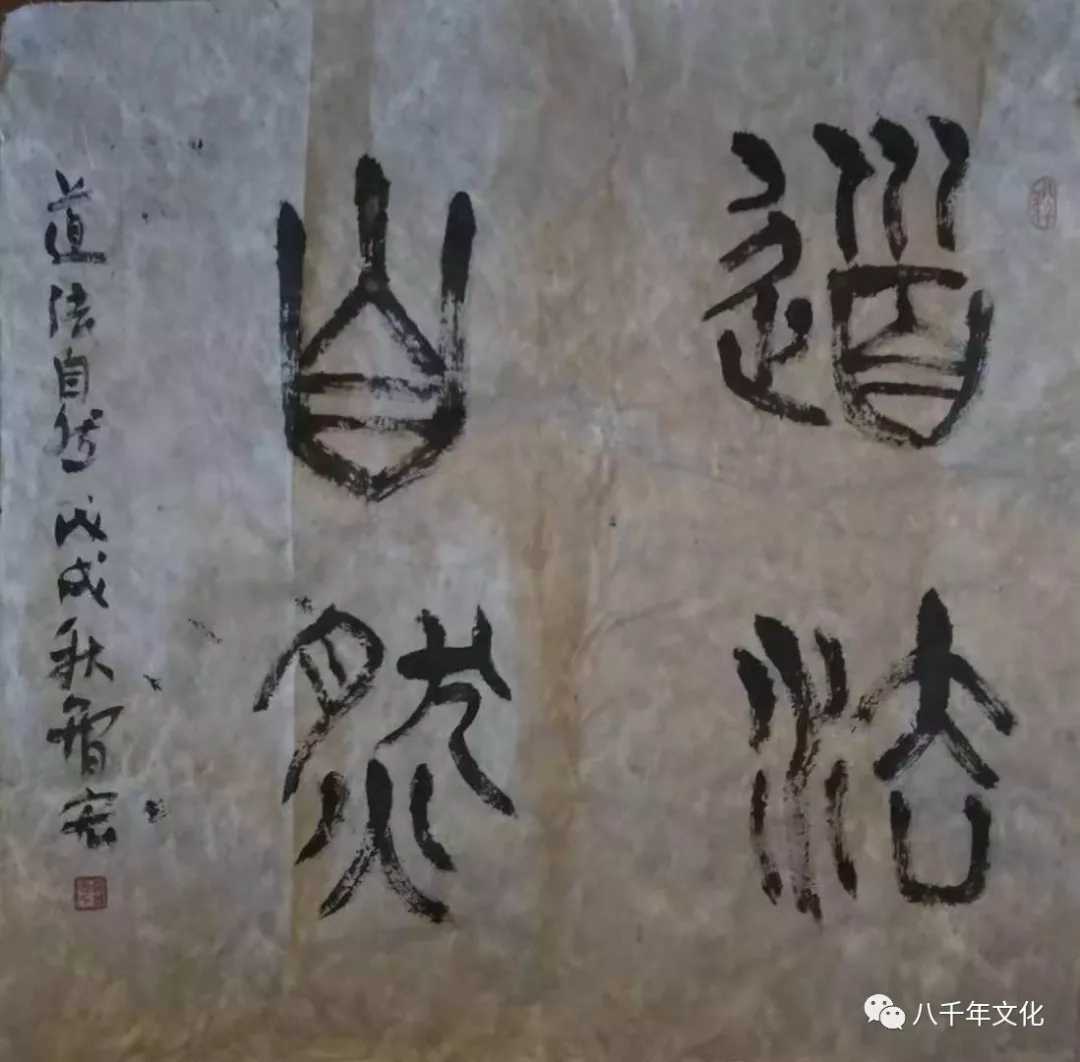 道法
自然
道法自然 戊戌秋智宏
八千年文化